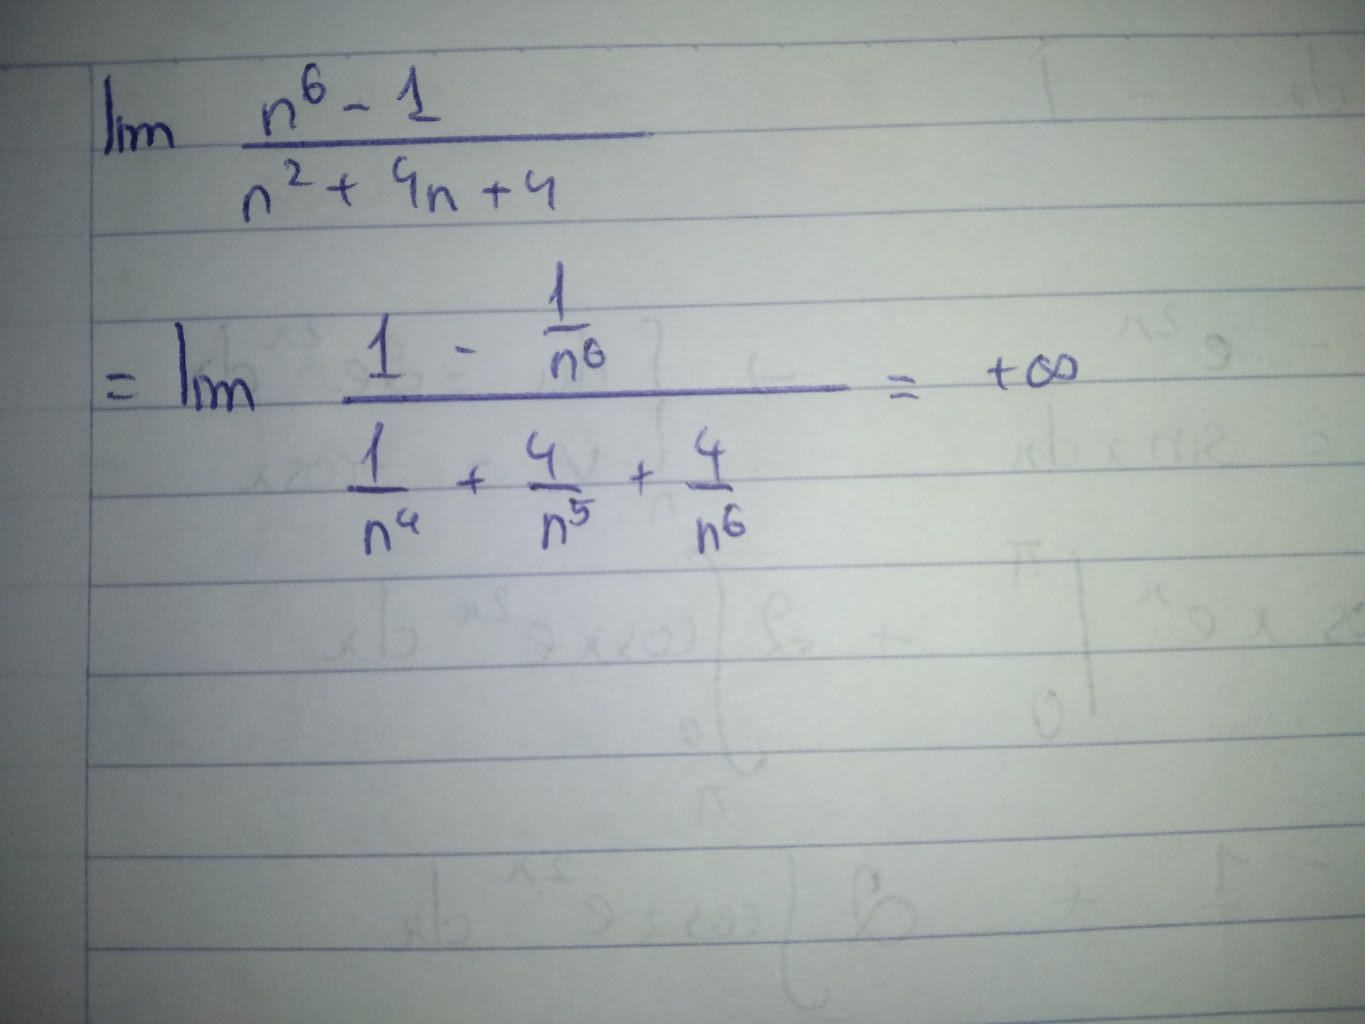 lim (n^6 - 1) / (n^2 + 4n + 4)
= lim (1 - 1/n^6) / (1/n^4 + 4/n^5 + 4/n^6) = +∞